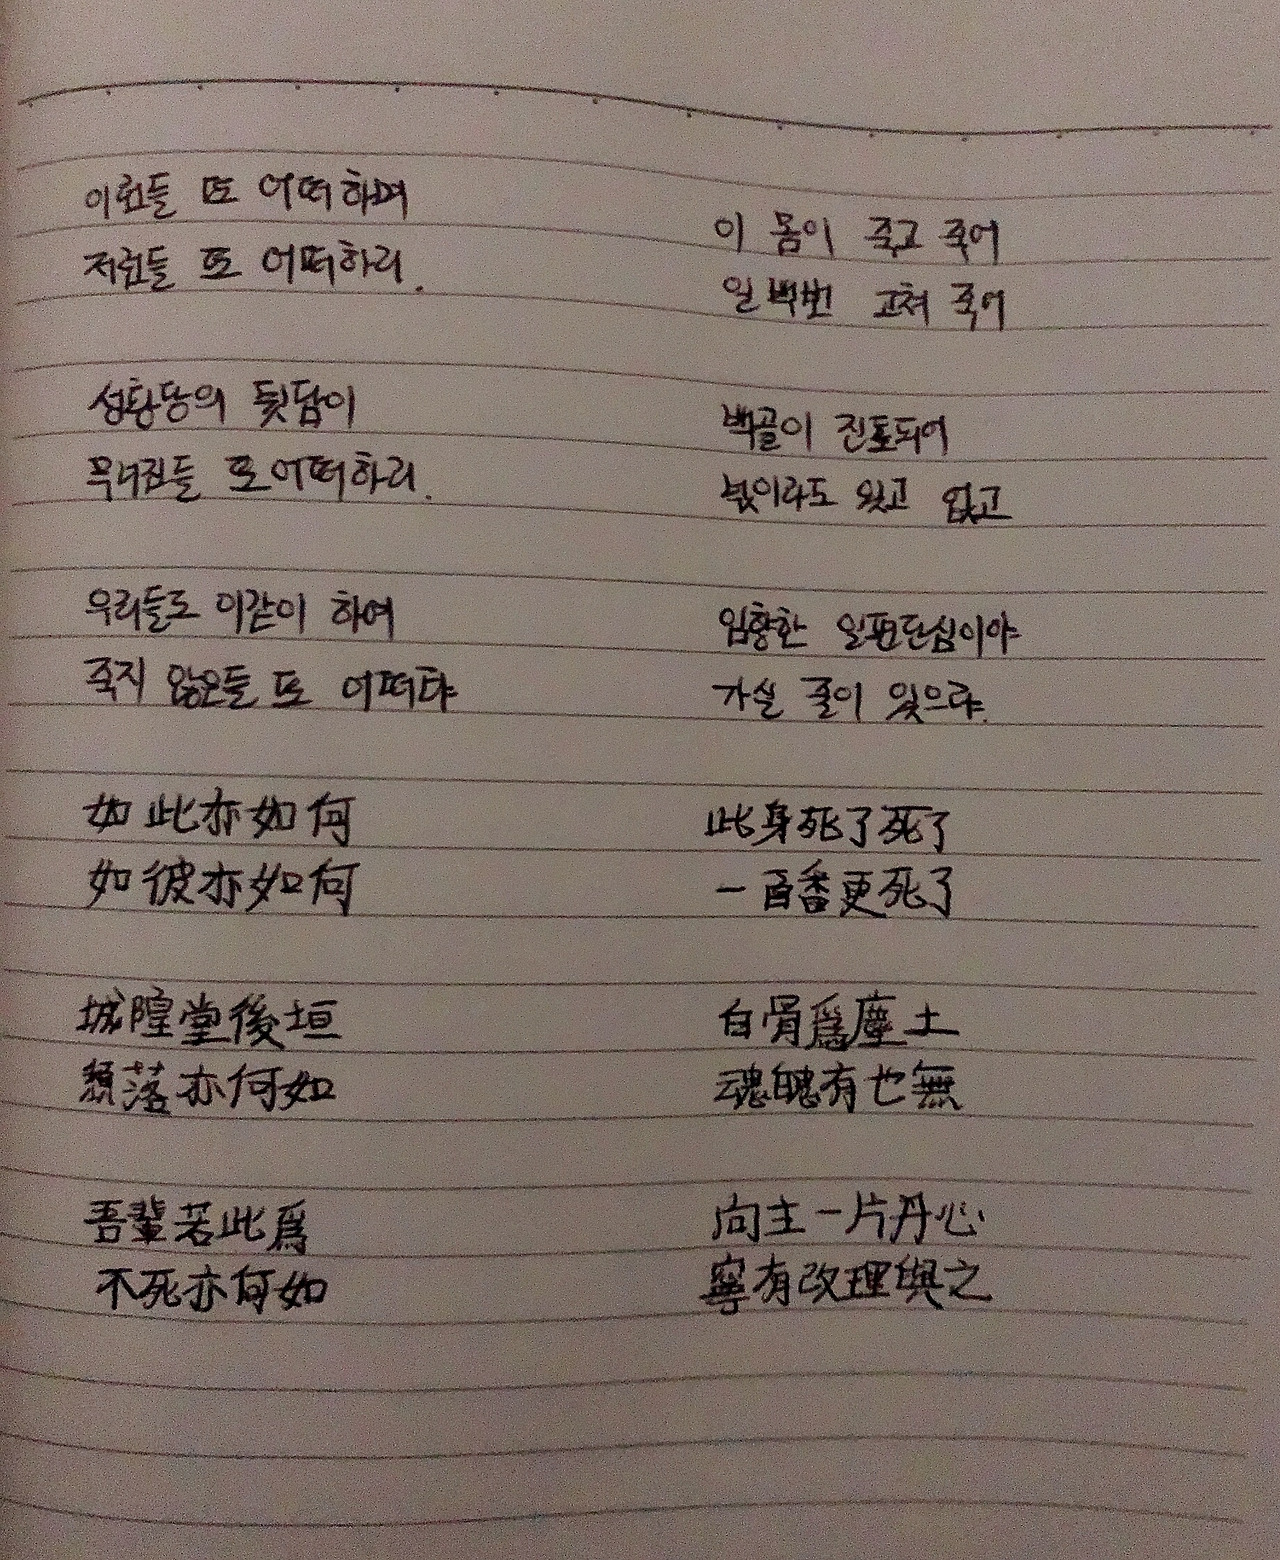 이런들 또 어떠하며
저런들 또 어떠하리.
성황당의 뒷담이
무너진들 또 어떠하리.
우리들도 이같이 하여
죽지 않은들 또 어떠랴
如此亦如何
如彼亦如何
城隍堂後垣
頹落亦何如
吾輩若此爲
不死亦何如
이 몸이 죽고 죽어
일백번 고쳐 죽어
백골이 진토되어
넋이라도 있고 없고
임향한 일편단심이야
가실 줄이 있으랴.
此身死了死了
一百番更死了
白骨爲塵土
魂魄有也無
向主一片丹心
寧有改理與之